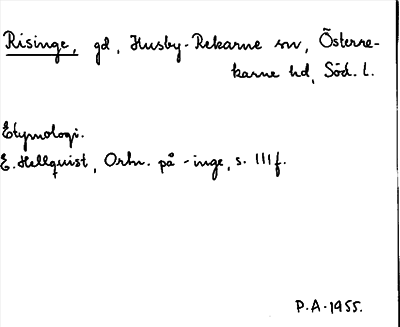 Risinge, gd, Husby-Rekarne sn, Österre-
karne hd, Söd. l.
Etymologi.
E. Hellquist, Ortn. på -inge, s. 111f.
P.A. 1955.